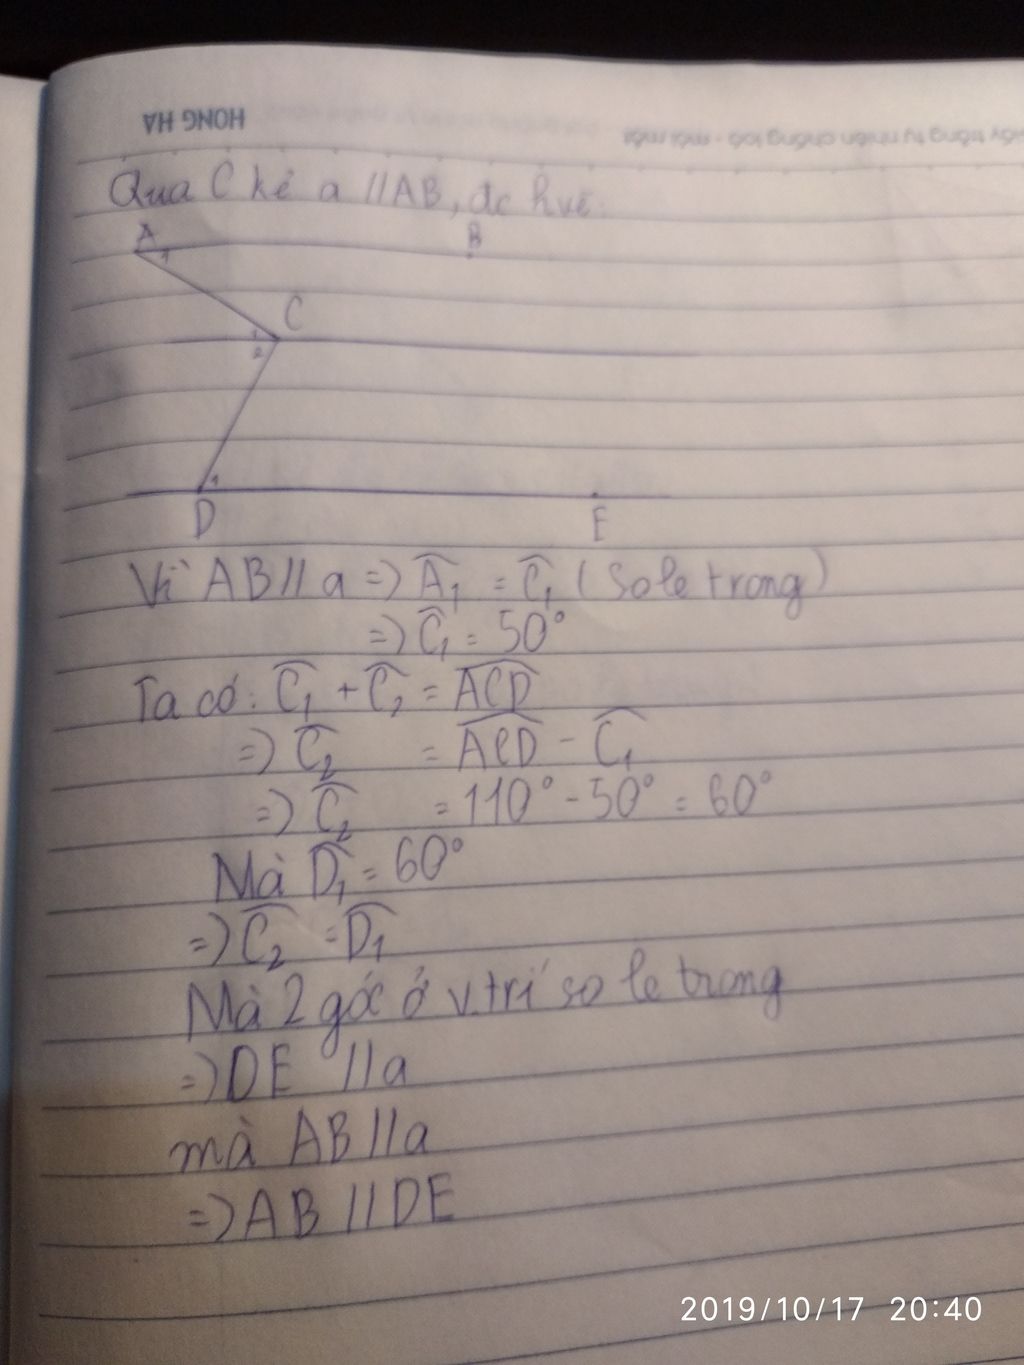 HONG HA
Qua C kẻ a // AB, đc hvẽ:
A
1
B
C
1
2
1
D
E
Vì AB // a => Â₁ = Ĉ₁ (so le trong)
=> Ĉ₁ = 50°
Ta có: Ĉ₁ + Ĉ₂ = ACD
=> Ĉ₂ = ACD - Ĉ₁
=> Ĉ₂ = 110° - 50° = 60°
Mà D̂₁ = 60°
=> Ĉ₂ = D̂₁
Mà 2 góc ở v.trí so le trong
=> DE // a
mà AB // a
=> AB // DE
2019/10/17 20:40